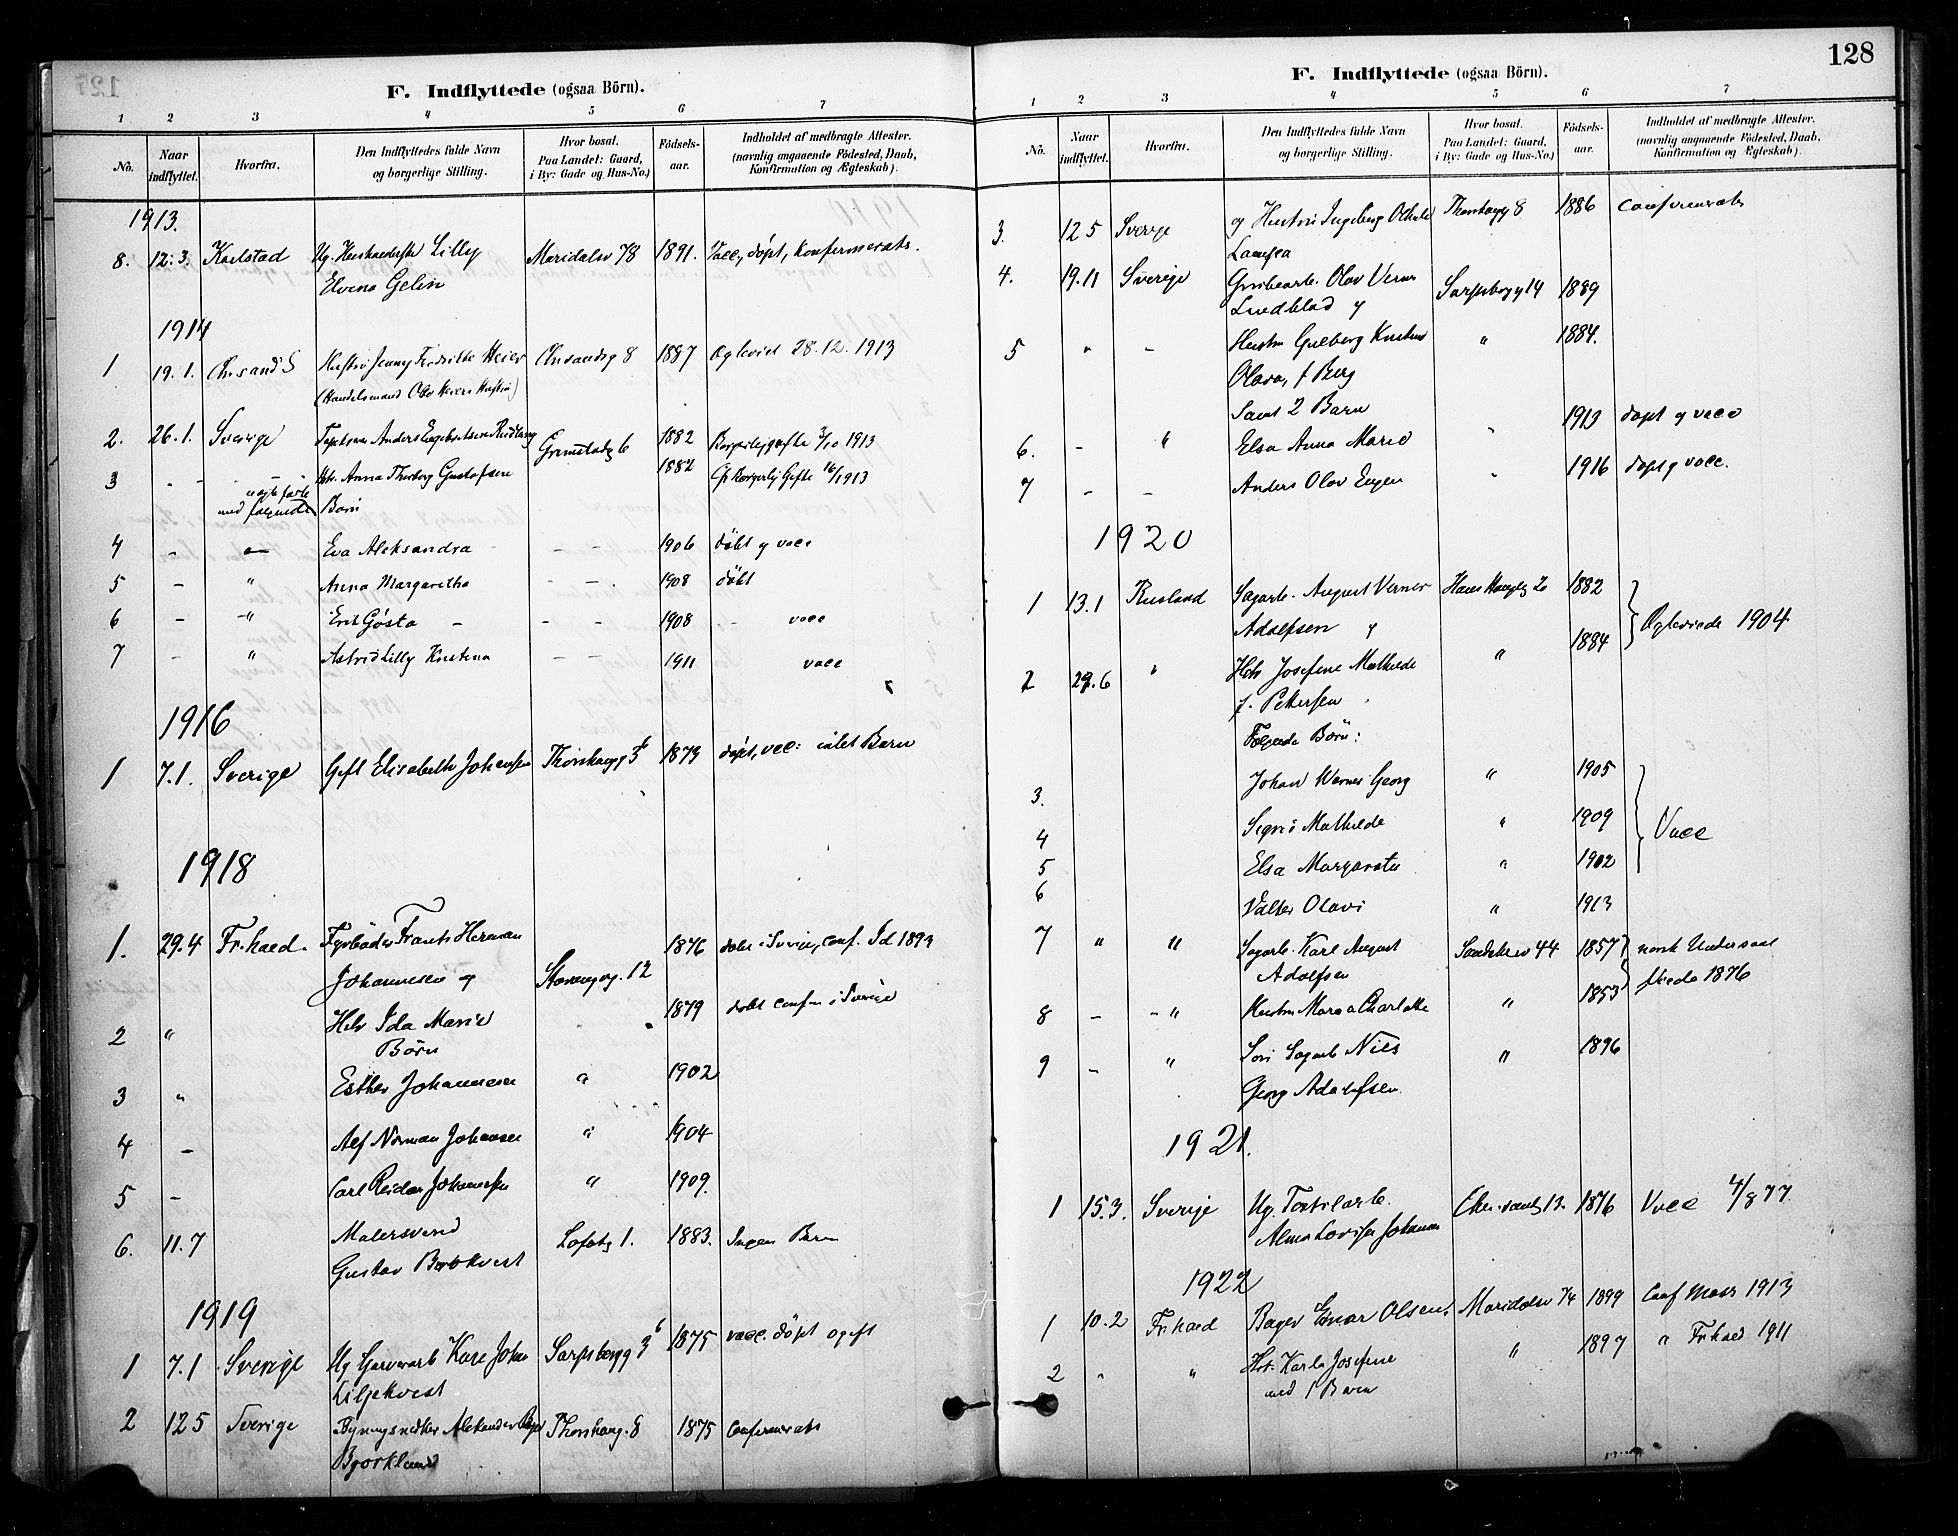 F. Indflyttede (ogsaa Börn).
1 2 3 4 5 6 7
No. Naar indflyttet. Hvorfra. Den Indflyttedes fulde Navn og borgerlige Stilling. Hvor bosat. Paa Landet: Gaard, i By: Gade og Hus-No.) Födsels-aar. Indholdet af medbragte Attester. (navnlig angaaende Födested, Daab, Konfirmation og Ægteskab).
1913.
8. 12.3. Karlstad Ug. Lilly Maridalsv 78 1891. Vacc, döpt, Konfirmerats.
Elvena Gelin
1914
1 19.1. Chrsand S Hustru Jenny Fredrikke Heier Chrsandsg 8 1887 Egteviet 28.12.1913
(Handelsmand Olav Heiers Hustru)
2. 26.1. Sverige Anders Grimstadg 6 1882 Borgerlig gifte 3/10 1913
3 - - Anna Thorborg Gustafsen 1882 Borgerlig Gifte 16/1913
med følgende Børn
4 - Eva Aleksandra - - 1906 døbt og vacc
5 - " Anna Margaretha - - 1908 døbt
6 - " Erik Gösta - - - 1908 - vacc
7 - " Astrid Lilly Kristina - - 1911 vacc
1916
1 7.1. Sverige Gift Elisabeth Johansen Thorshaugg 3 1873 døpt, vacc: intet Barn
1918
1. 29.4 Fr.haed. Fyrbøder Frants Herman 1876 døbt i Sverige, conf. Id 1893
Johannesen og Stavangg. 12
2 " Ida Marie " 1879 døbt conf i Sverige
Børn
3 " Esther Johannesen " 1902
4 - Alf Norman Johansen " 1904
5 - Carl Reidar Johannesen " 1909.
6. 11.7 Malersvend Lofotg 1. 1883. Ingen Barn
Gustav
1919
1 7.1 Sverige Ug Garverarb Karl Johan Sarpsborgg 3 6 1875 vacc. döpt ogift
Liljekvist
2 12 5 Sverige Aleksander Thorshaug. 8 1875 Confirmerats
Bjorklund
128
F. Indflyttede (ogsaa Börn).
1 2 3 4 5 6 7
No. Naar indflyttet. Hvorfra. Den Indflyttedes fulde Navn og borgerlige Stilling. Hvor bosat. Paa Landet: Gaard, i By: Gade og Hus-No.) Födsels-aar. Indholdet af medbragte Attester. (navnlig angaaende Födested, Daab, Konfirmation og Ægteskab).
3. 12 5 Sverige og Hustru Ingeborg Thorshaugg 8 1886 Confirmerats
4. 19.11 Sverige Olov Verner Sarpsborgg 14 1889
Lundblad og
5 " - Hustru Kristine " 1884.
Olava, f Berg
Samt 2 Barn
6. - " Elsa Anna Maria " 1913 döpt og vacc
7 - - Anders Olov Eugen " 1916 döpt og vacc.
1920
1 13.1 Rusland Sagarb. August Verner Hans Haugesg 20 1882
Adolfsen og Egteviede 1904
2 29.6 " Josefine Mathilde " 1884
f. Pettersen
Følgende Børn:
3. Johan Werner Georg " 1905
4 Signe Mathilde " 1909 Vacc
5 Elsa Margareta " 1902
6 Valter Olavi " 1913
7 " " Sagarb. Karl August 44 1857 norsk Undersaat
Adolfsen viede 1876
8 - - " Hustru Maria Charlotte " 1853
9 - " Søn Sagarb Nils " 1896
Georg Adolfsen
1921.
1 15.3. Sverige Ug. Textilarb. Chr.sandg 12. 1876 Vacc 4/8 77
Alma Lovisa Johansen
1922
1 10.2 Fr.haed Bager Einar Olsen. Maridalsv 74 1899 Conf Moss 1913
2 " " Karla Josefine " 1897 " Fr.haed 1911
med 1 Barn